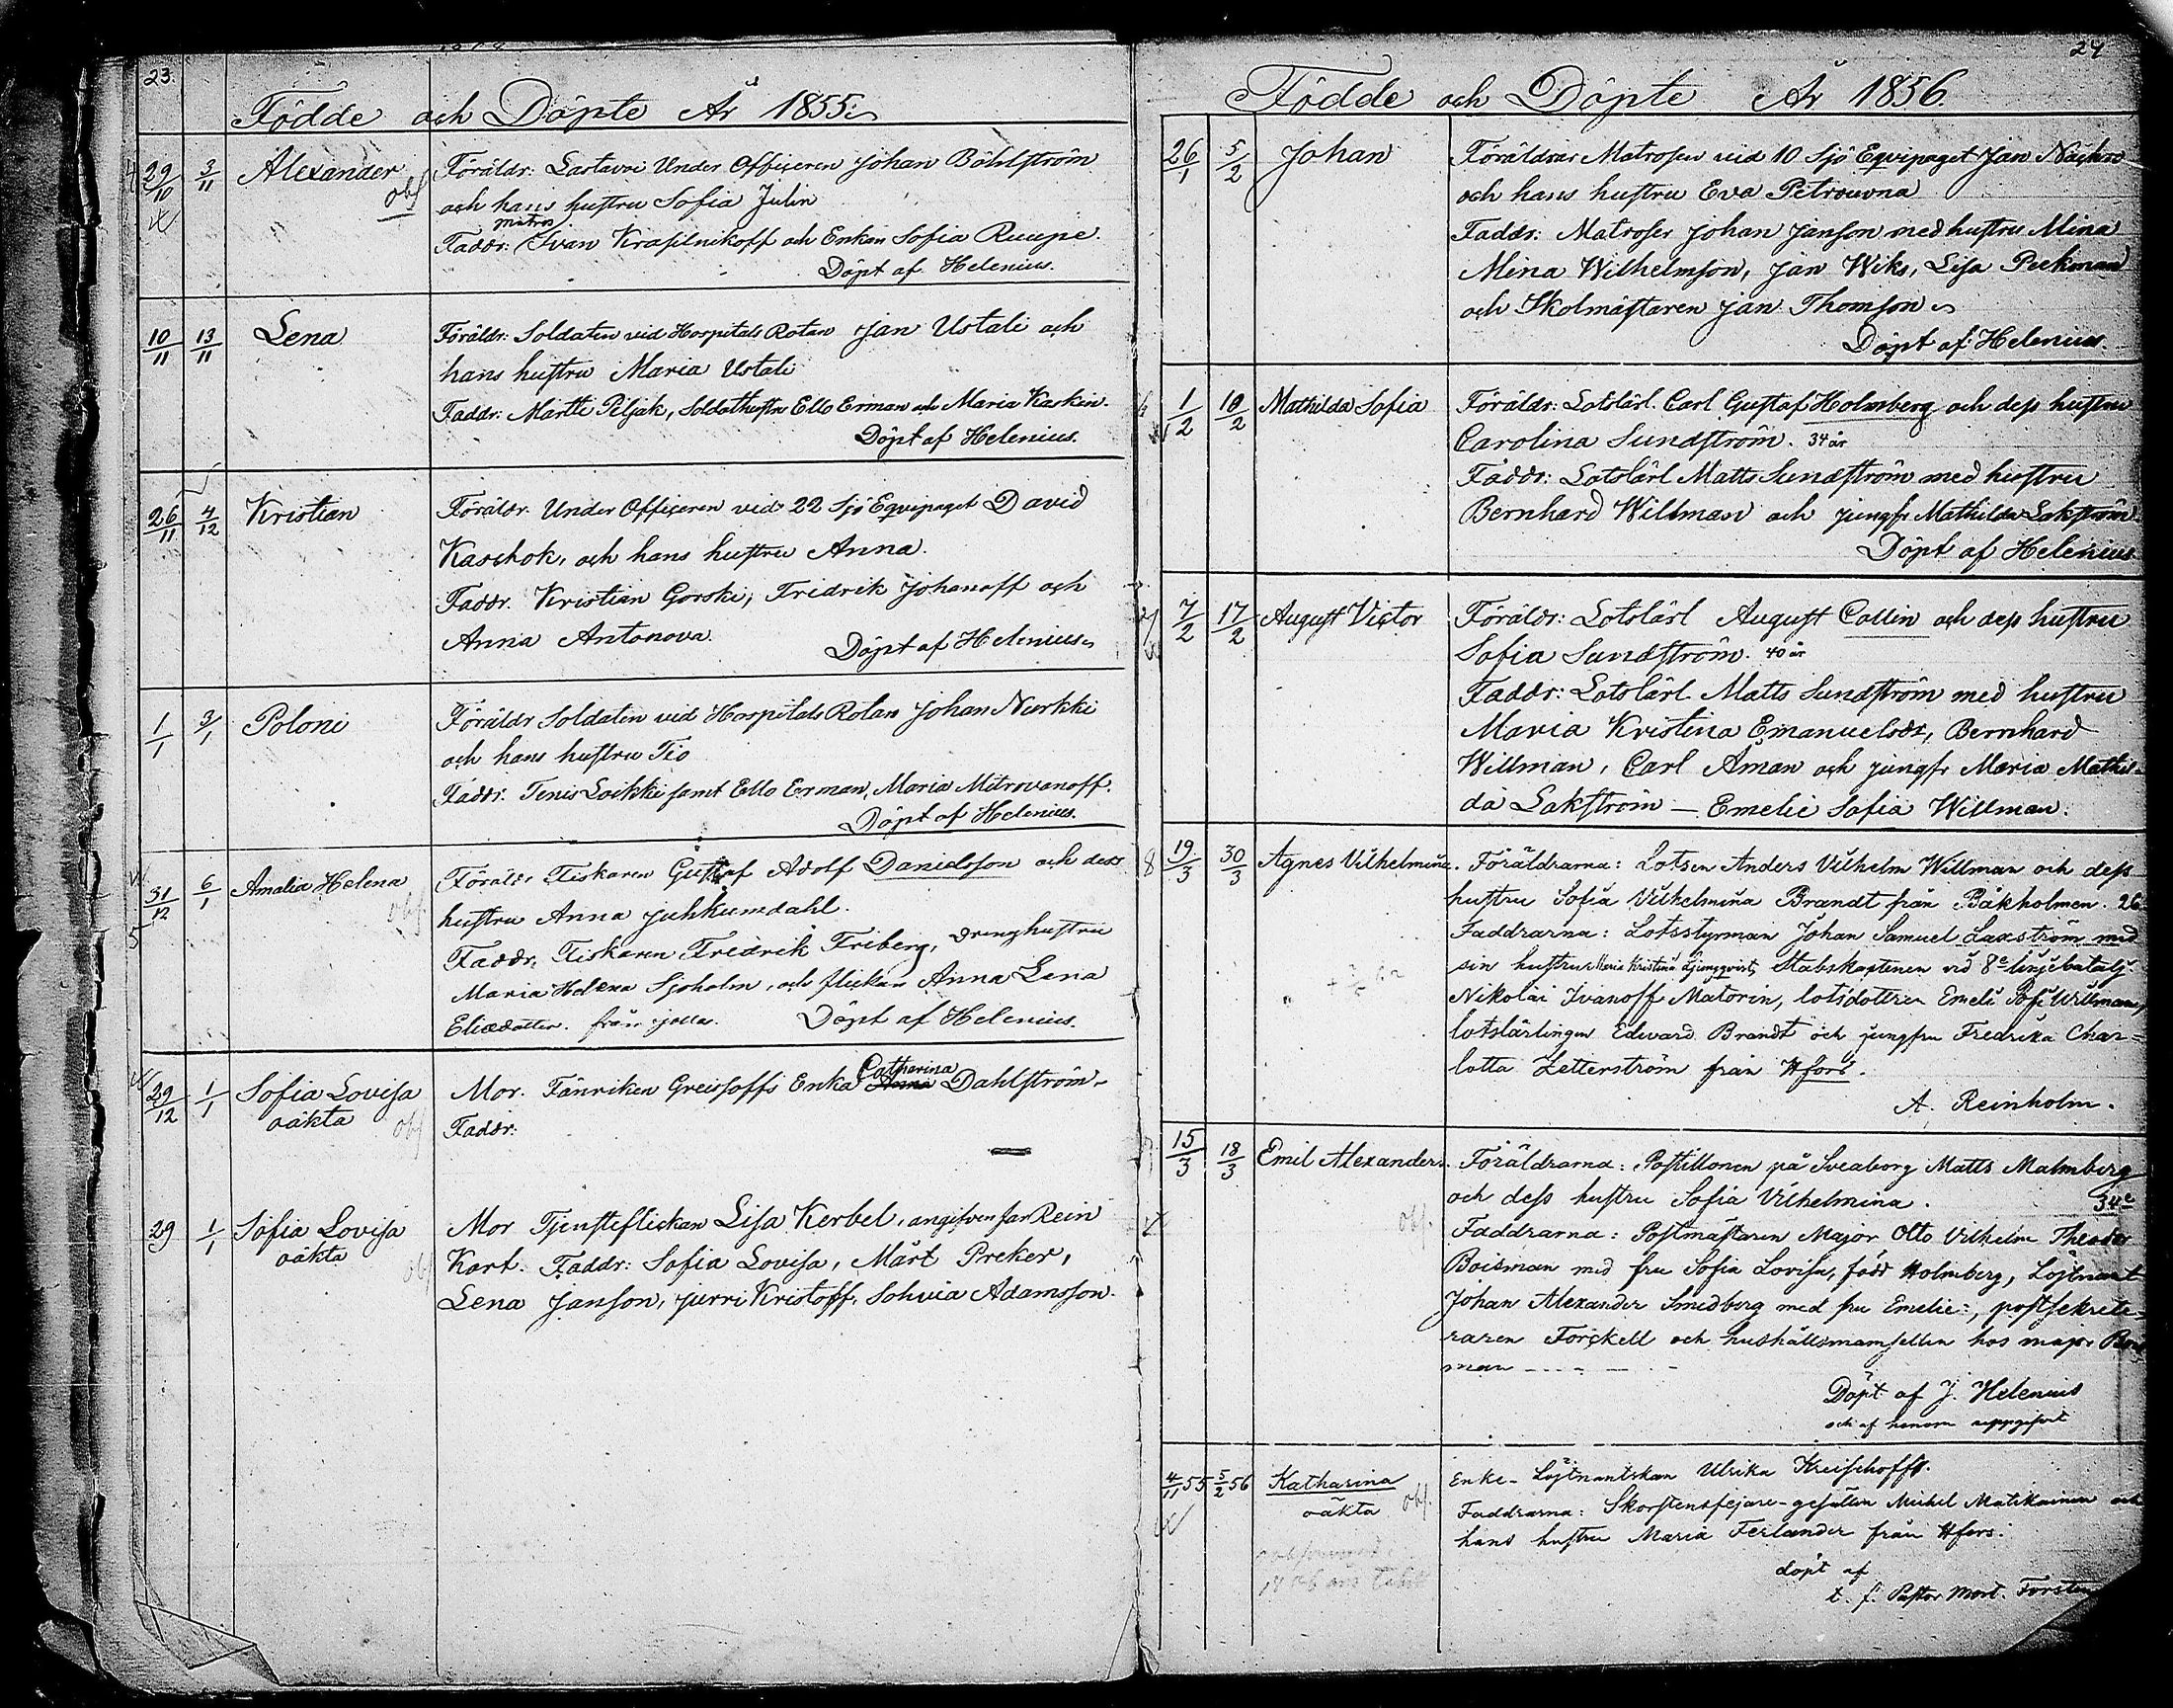 23.
Födde och Döpte År 1855.
4 29/10 3/11 Alexander obs
Föräldr: Lastavoi Under Officeren Johan Böhlström
och hans hustru Sofia Julin
matros
Faddr: Ivan Krasilnikoff och Enkan Sofia Ruupe.
Döpt af Helenius.
10/11 13/11 Lena
Föräldr: Soldaten vid Hospitals Rotan Jan Ustali och
hans hustru Maria Ustali
Faddr: Martti Piljak, Soldathustru Ello Erman och Maria Kaskin.
Döpt af Helenius.
26/11 4/12 Kristian
Föräldr. Under Officeren vid 22 Sjö Eqvipaget David
Kaschok, och hans hustru Anna.
Faddr. Kristian Gorski, Fridrik Johanoff och
Anna Antonova. Döpt af Helenius
1/1 3/1 Poloni
Föräldr Soldaten vid Hospitals Rotan Johan Nurkki
och hans hustru Tio
Faddr. Tenis Loikki samt Ello Erman, Maria Mitrovanoff.
Döpt af Helenius.
5 31/12 6/1 Amalia Helena obs
Föräldr Fiskaren Gustaf Adolf Danielsson och dess
hustru Anna Juhkumdahl.
Faddr. Fiskaren Fredrik Friberg, Drenghustru
Maria Helena Sjöholm, och flickan Anna Lena
Eliædotter. från Jollas. Döpt af Helenius.
29/12 1/1 Sofia Lovisa obs
oäkta
Catharina
Mor. Fänriken Greissoffs Enka Anna Dahlström
Faddr:
29 1/1 Sofia Lovisa obs
oäkta
Mor Tjensteflickan Lisa Kerbel, angifven far Rein
Kort. Faddr: Sofia Lovisa, Märt Preker,
Lena Janson, Jurri Kristoff, Sohvia Adamsson.
24
Födde och Döpte År 1856.
26/1 5/2 Johan
Föräldrar Matrosen vid 10 Sjö Eqvipaget Jan
och hans hustru Eva Petrouvna
Faddr: Matroser Johan Janson med hustru Mina
Mina Wilhelmson, Jan Wiks, Lisa Peekman
och Skolmästaren Jan Thomson
Döpt af Helenius.
1/2 10/2 Mathilda Sofia
Föräldr: Lotslärl. Carl Gustaf Holmberg och dess hustru
Carolina Sundström. 34 år
Faddr: Lotslärl Matts Sundström med hustru
Bernhard Willman och jungfr Mathilda Lakström.
Döpt af Helenius
7/2 17/2 August Victor
Föräldr: Lotslärl August Collin och dess hustru
Sofia Sundström. 40 år
Faddr: Lotslärl. Matts Sundström med hustru
Maria Kristina Emanuelsdr, Bernhard
Willman, Carl Åman och jungfr Maria Mathil-
da Lakström — Emelie Sofia Willman.
8 19/3 30/3 Agnes Vilhelmina.
Föräldrarna: Lotsen Anders Vilhelm Willman och dess
hustru Sofia Vilhelmina Brandt från Båkholmen. 26
Faddrarna: Lotsstyrman Johan Samuel Laxström med
sin hustru Maria Kristina Ljungqvist, Stabskaptenen vid 8e linjebatalj.
Nikolai Ivanoff Matorin, lotsdottren Emeli Sofi Willman,
lotslärlingen Edward Brandt och jungfru Fredrika Char=
lotta Zetterström från Hfors.
A. Reinholm.
15/3 18/3 Emil Alexander. obs.
Föräldrarna: Postillonen på Sveaborg Matts Malmberg
och dess hustru Sofia Vilhelmina. 34
Faddrarna: Postmästaren Major Otto Vilhelm Theodor
Boisman med fru Sofia Lovisa, född Holmberg, Löjtnant
Johan Alexander Smedberg med fru Emelie:, postsekrete-
raren Forsckell och hushållsmamsellen hos major Bois
man - - - -
Döpt af J. Helenius
och af honom uppgifvet
4/11 55 5/2 56 Katharina obs.
oäkta
Enke-Löjtnantskan Ulrika Kreischoff.
Faddrarna: Skorstensfejare-gesällen Michel Matikainen och
hans hustru Maria Ferlander från Hfors.
döpt af
t. f. Pastor Mort. Forsten